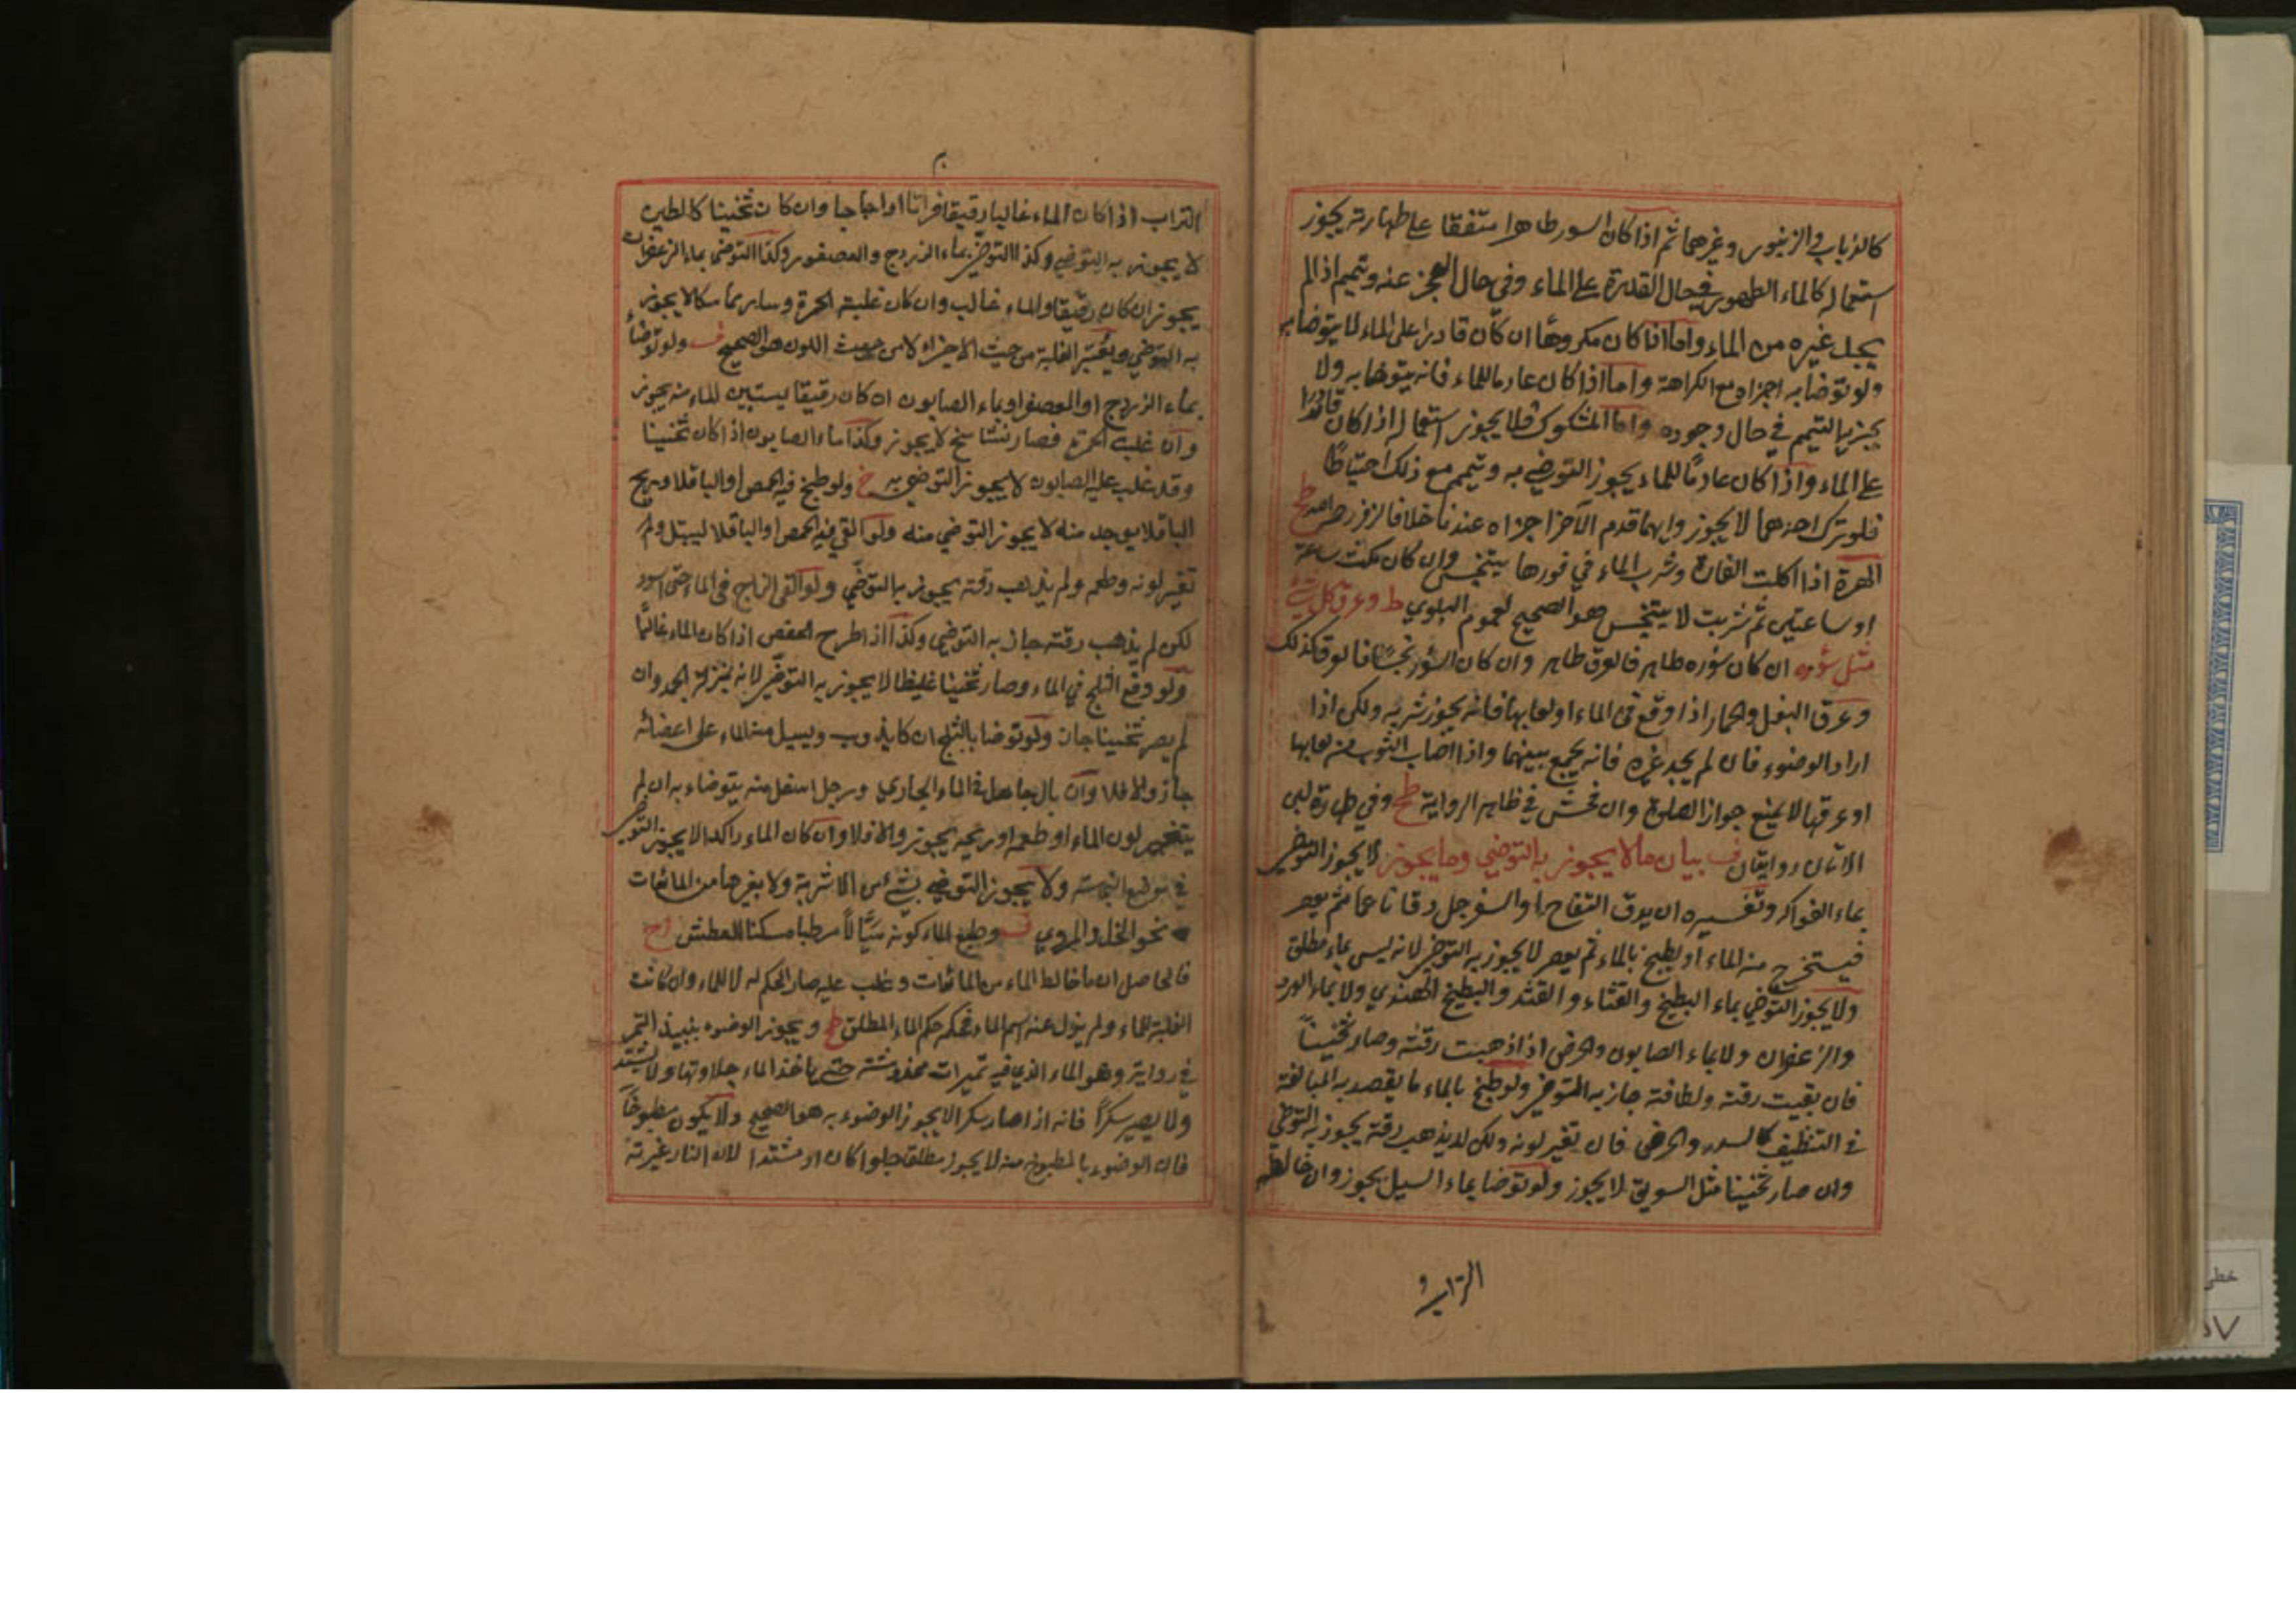 كالذباب والزنبور وغيرهما ثم اذا كان السور طاهرا متفقا على طهارته يجوز
استعماله كالماء الطهور في حال القدرة على الماء وفي حال العجز عنه ويتيمم اذا لم
يجد غيره من الماء واما اذا كان مكروها ان كان قادرا على الماء لا يتوضا به
ولو توضا به اجزاه مع الكراهة واما اذا كان عادما للماء فانه يتوضا به ولا
يجزيه التيمم في حال وجوده واما المشكوك فلا يجوز استعماله اذا كان قادرا
على الماء واذا كان عادمًا للماء يجوز التوضي به ويتيمم مع ذلك احتياطًا
فلو ترك احدهما لا يجوز وايهما قدم الآخر اجزاه عندنا خلافا لزفر رحمه الله ط
الهرة اذا اكلت الفارة وشرب الماء في فورها يتنجس وان كان مكثت ساعة
او ساعتين ثم شربت لا يتنجس هو الصحيح لعموم البلوي ط وعرق كل شئ
مثل سؤره ان كان سؤره طاهر فالعرق طاهر وان كان السؤر نجسًا فالعرق كذلك
وعرق البغل والحمار اذا وقع في الماء او لعابهما فانه يجوز شربه ولكن اذا
اراد الوضوء فان لم يجد غيره فانه يجمع بينهما واذا اصاب الثوب من لعابها
او عرقها لا يمنع جواز الصلوة وان فحش في ظاهر الرواية ط وفي طهارة لبن
الاتان روايتان ف بيان ما لا يجوز به التوضي وما يجوز لا يجوز التوضي
بماء الفواكه وتفسيره ان يدق التفاح او السفرجل دقا ناعما ثم يعصر
فيستخرج منه الماء او يطبخ بالماء ثم يعصر لا يجوز به التوضي لانه ليس بماء مطلق
ولا يجوز التوضي بماء البطيخ والقثاء والقثد والبطيخ الهندي ولا بماء الورد
والزعفران ولا بماء الصابون والحرض اذا ذهبت رقته وصار ثخينًا
فان بقيت رقته ولطافته جاز به التوضي ولو طبخ بالماء ما يقصد به المبالغة
في التنظيف كالسدر والحرض فان تغير لونه ولكن لم يذهب رقته يجوز به التوضي
وان صار ثخينا مثل السويق لا يجوز ولو توضا بماء السيل يجوز وان خالطه
التراب اذا كان الماء غالبا رقيقا فراتا او اجاجا وان كان ثخينا كالطين
لا يجوز به التوضي وكذا التوضي بماء الزردج والعصفور وكذا التوضي بماء الزعفران
يجوز ان كان رقيقا والماء غالب وان كان غلبته الحمرة وصار متماسكا لا يجوز
به التوضي ويعتبر الغلبة من حيث الاجزاء لا من حيث اللون هو الصحيح ف ولو توضا
بماء الزردج او العصفر او بماء الصابون ان كان رقيقا يستبين الماء منه يجوز
وان غلبت الحمرة فصار نشاستج لا يجوز وكذا ماء الصابون اذا كان ثخينا
وقد غلب عليه الصابون لا يجوز التوضي به خ ولو طبخ فيه الحمص او الباقلا وريح
الباقلا يوجد منه لا يجوز التوضي منه ولو القي فيه الحمص او الباقلا ليبتل ولم
تغير لونه وطعمه ولم يذهب رقته يجوز به التوضي ولو القي الزاج في الماء حتى اسود
لكن لم يذهب رقته جاز به التوضي وكذا اذا طرح العفص اذا كان الماء غالبًا
ولو وقع الثلج في الماء وصار ثخينا غليظا لا يجوز به التوضي لانه بمنزلة الجمد وان
لم يصر ثخينا جاز ولو توضا بالثلج ان كان يذوب ويسيل منه الماء على اعضائه
جاز والا فلا وان بال جاهل في الماء الجاري ورجل اسفل منه يتوضاء به ان لم
يتغير لون الماء او طعمه او ريحه يجوز والا فلا وان كان الماء راكدا لا يجوز التوضي
في موضع النجاسة ولا يجوز التوضي بشئ من الاشربة ولا بغيرها من المائعات
نحو الخل والمري ف وطبع الماء كونه سيّالاً مرطبا مسكنا للعطش ح
فالحاصل ان ما خالط الماء من المائعات وغلب عليه صار الحكم له لا للماء وان كانت
الغلبة للماء ولم يزل عنه اسم الماء فحكمه حكم الماء المطلق ط ويجوز الوضوء بنبيذ التمر
في رواية وهو الماء الذي فيه تميرات حتى ياخذ الماء حلاوتها ولا يشتد
ولا يصير سكرًا فانه اذا صار سكرا لا يجوز الوضوء به هو الصحيح ولا يكون مطبوخًا
فان الوضوء بالمطبوخ منه لا يجوز مطلق حلوا كان او مشتدا لان النار غيرته